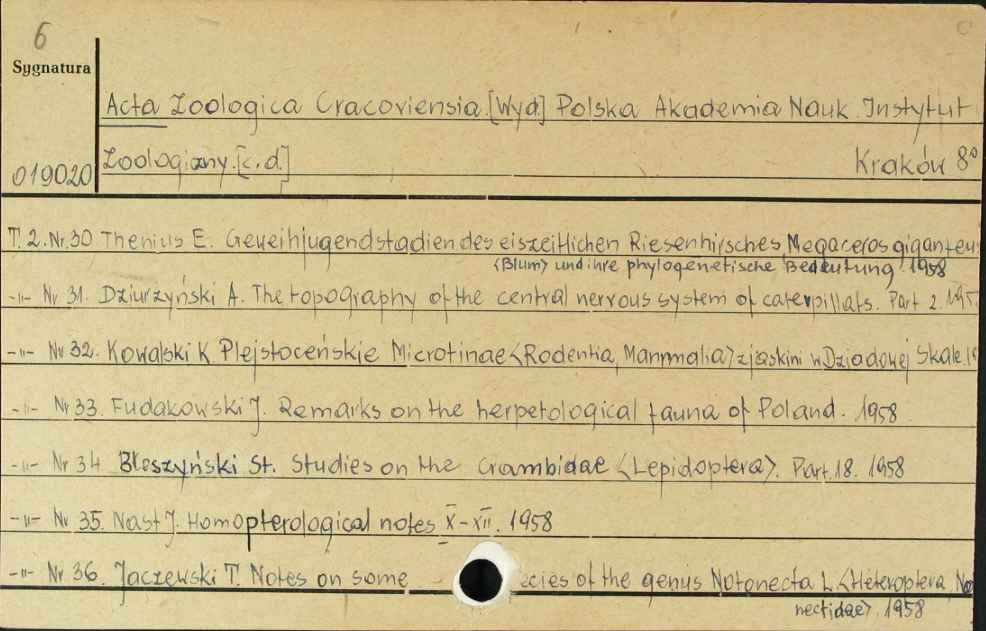 6
Sygnatura
Acta Zoologica Cracoviensia.[Wyd.] Polska Akademia Nauk. Instytut
019020 Zoologiczny.[c.d.] Kraków 8°
T. 2. Nr. 30 Thenius E. Geweihjugendstadien des eiszeitlichen Riesenhirsches Megaceros giganteus
<Blum> und ihre phylogenetische Bedeutung. 1958
-"- Nr 31. Dziurzyński A. The topography of the central nervous system of caterpillats. Part 2. 195
-"- Nr 32. Kowalski K. Plejstoceńskie Microtinae <Rodentia, Mammalia> z jaskini w Dziadowej Skale.
-"- Nr 33. Fudakowski J. Remarks on the herpetological fauna of Poland. 1958
-"- Nr 34 Błeszyński St. Studies on the Crambidae <Lepidoptera>. Part. 18. 1958
-"- Nr 35. Nast J. Homopterological notes X-XII. 1958
-"- Nr 36. Jaczewski T. Notes on some ecies of the genus Notonecta L. <Heteroptera,
nectidae>. 1958